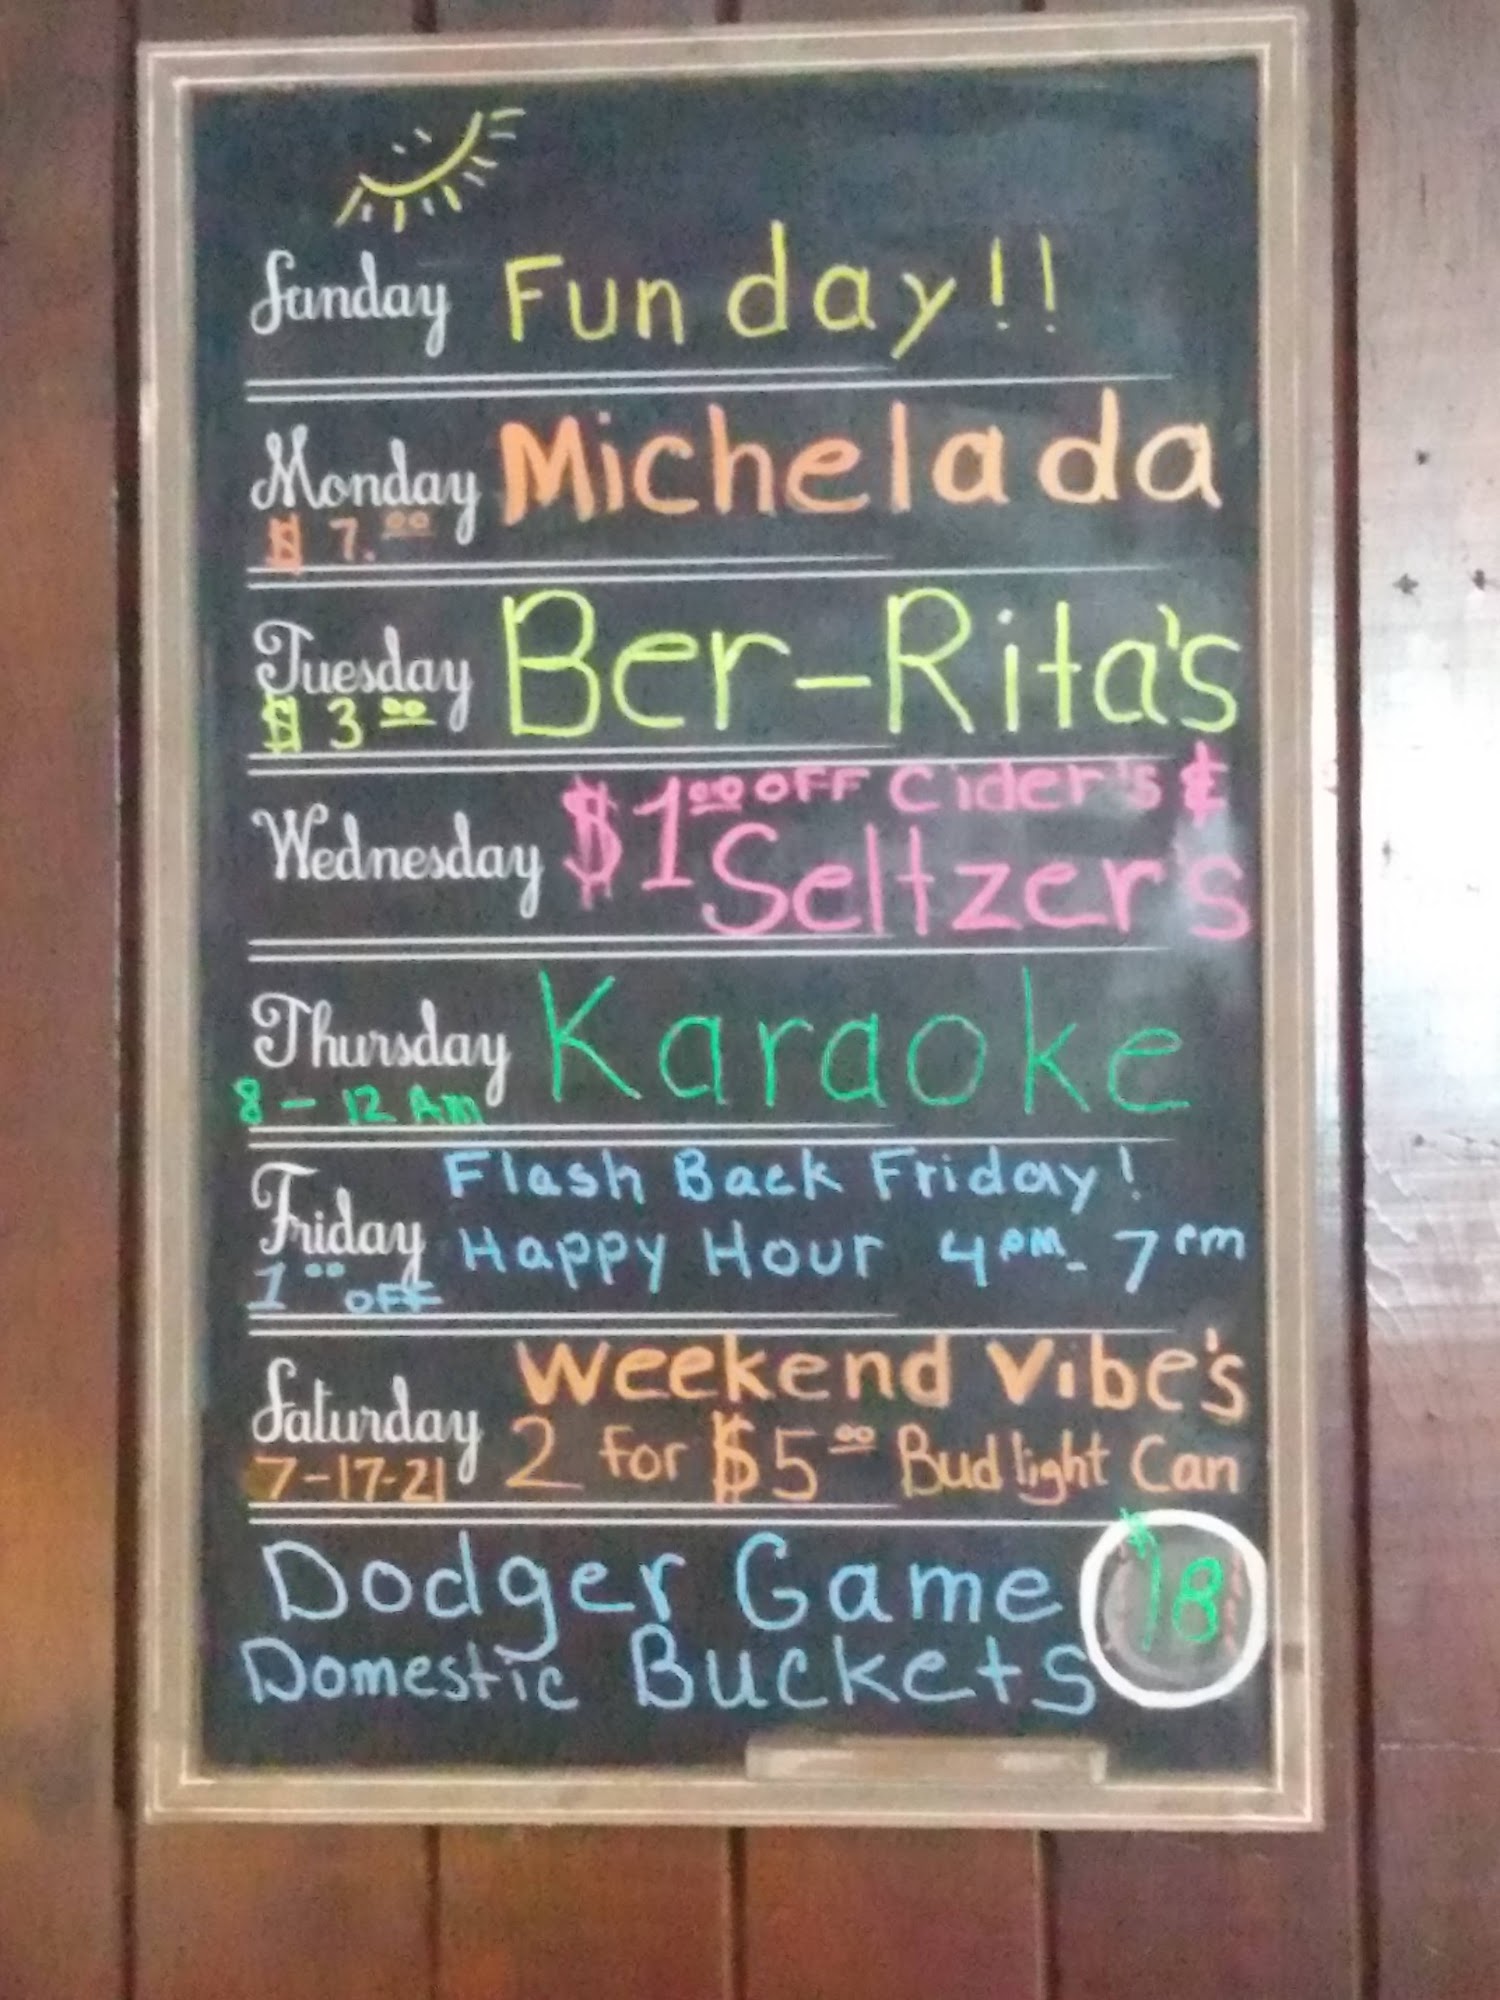 Sunday Fun day!!
Monday Michelada
$7.00
Tuesday Ber-Rita's
$3.00
Wednesday $1.00 OFF Cider's &
Seltzers
Thursday Karaoke
8 - 12 Am
Flash Back Friday!
Friday Happy Hour 4PM - 7PM
1.00 OFF
Weekend Vibe's
Saturday 2 for $5.00 Bud light Can
7-17-21
Dodger Game $18
Domestic Buckets